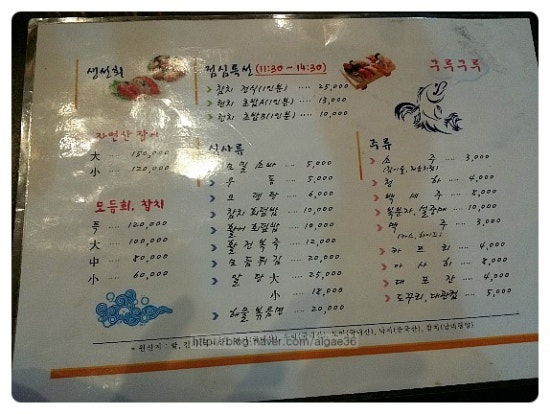 생선회
자연산 광어
大 .... 150,000
小 .... 120,000
모듬회, 참치
특 .... 120,000
大 .... 100,000
中 .... 80,000
小 .... 60,000
점심특선 (11:30 ~ 14:30)
참치 정식(1인분) .... 25,000
런치 초밥A(1인분) .... 13,000
런치 초밥B(1인분) .... 10,000
식사류
모밀소바 .... 5,000
우동 .... 5,000
오뎅탕 .... 6,000
참치 회덮밥 .... 10,000
활어 회덮밥 .... 10,000
활 전복죽 .... 12,000
모듬튀김 .... 20,000
알탕 大 .... 25,000
小 .... 18,000
해물볶음면 .... 20,000
구루구루
주류
소주 .... 3,000
청하 .... 4,000
백세주 .... 8,000
복분자, 설중매 .... 10,000
맥주 .... 3,000
카프리 .... 4,000
아사히 .... 8,000
대포잔 .... 4,000
도쿠리, 대관컵 .... 5,000
* 원산지 : 쌀, 김
http://blog.naver.com/algae36